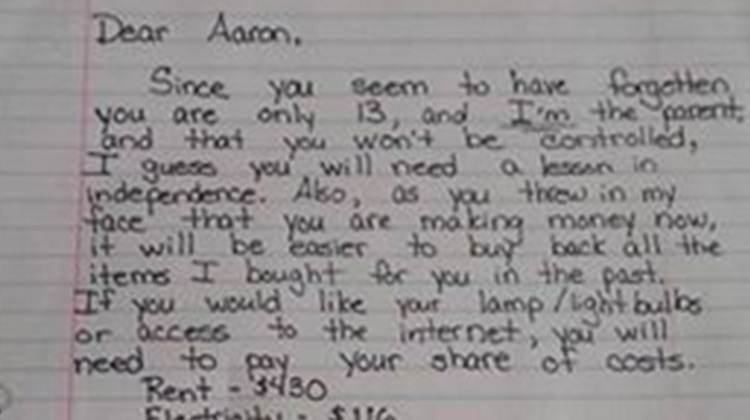 Dear Aaron.
Since you seem to have forgotten
you are only 13, and I'm the parent,
and that you won't be controlled,
I guess you will need a lesson in
independence. Also, as you threw in my
face that you are making money now,
it will be easier to buy back all the
items I bought for you in the past.
If you would like your lamp/lightbulbs
or access to the internet, you will
need to pay your share of costs.
Rent - $430
Electricity - $116